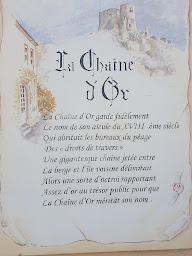 La Chaîne
d'Or
La Chaîne d'Or garde fidèlement
Le nom de son aïeule du XVIII ème siècle
Qui abritait les bureaux du péage
Des « droits de travers »
Une gigantesque chaîne jetée entre
La berge et l'île voisine délimitant
Alors une sorte d'octroi rapportant
Assez d'or au trésor public pour que
La Chaîne d'Or méritât son nom.